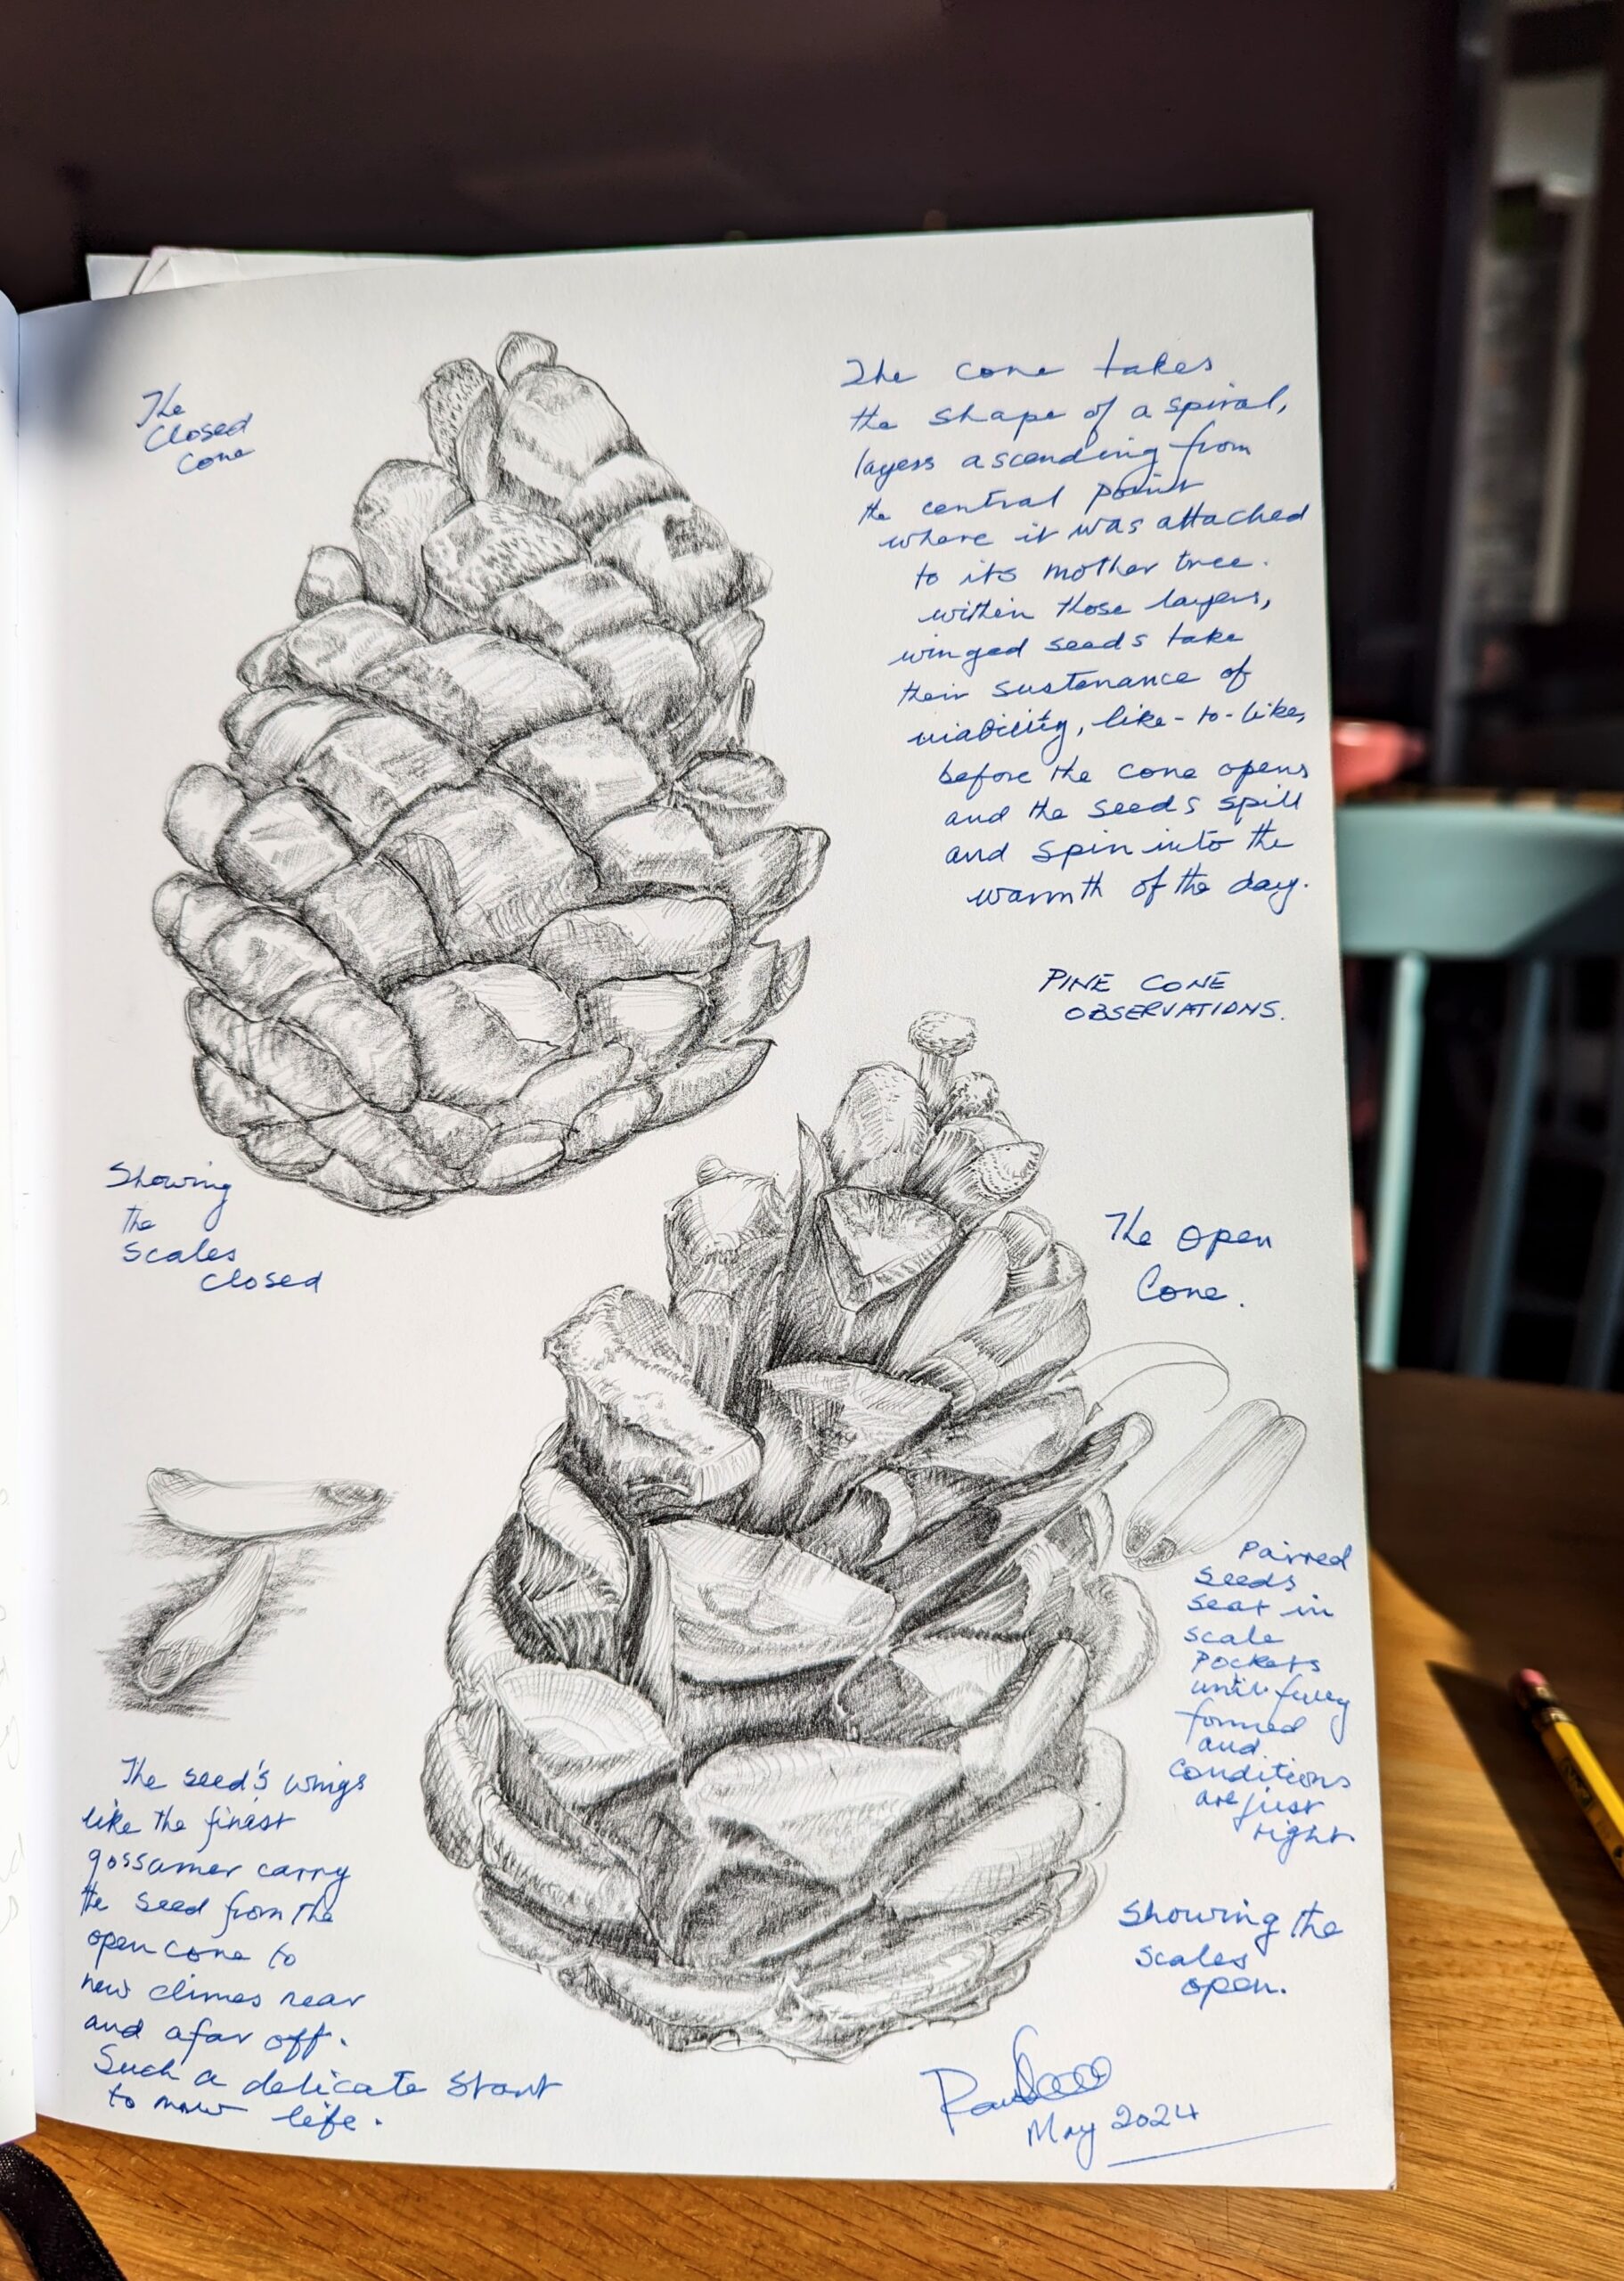 The
Closed
Cone
The cone takes
the shape of a spiral,
layers ascending from
the central point
where it was attached
to its mother tree.
within those layers,
winged seeds take
their sustenance of
viability, like-to-like,
before the cone opens
and the seeds spill
and spin into the
warmth of the day.
PINE CONE
OBSERVATIONS.
Showing
the
scales
closed
The open
Cone.
Paired
seeds
seat in
scale
pockets
until fully
formed
and
conditions
are just
right.
The seed's wings
like the finest
gossamer carry
the seed from the
open cone to
new climes near
and afar off.
Such a delicate start
to new life.
Showing the
scales
open.
May 2024